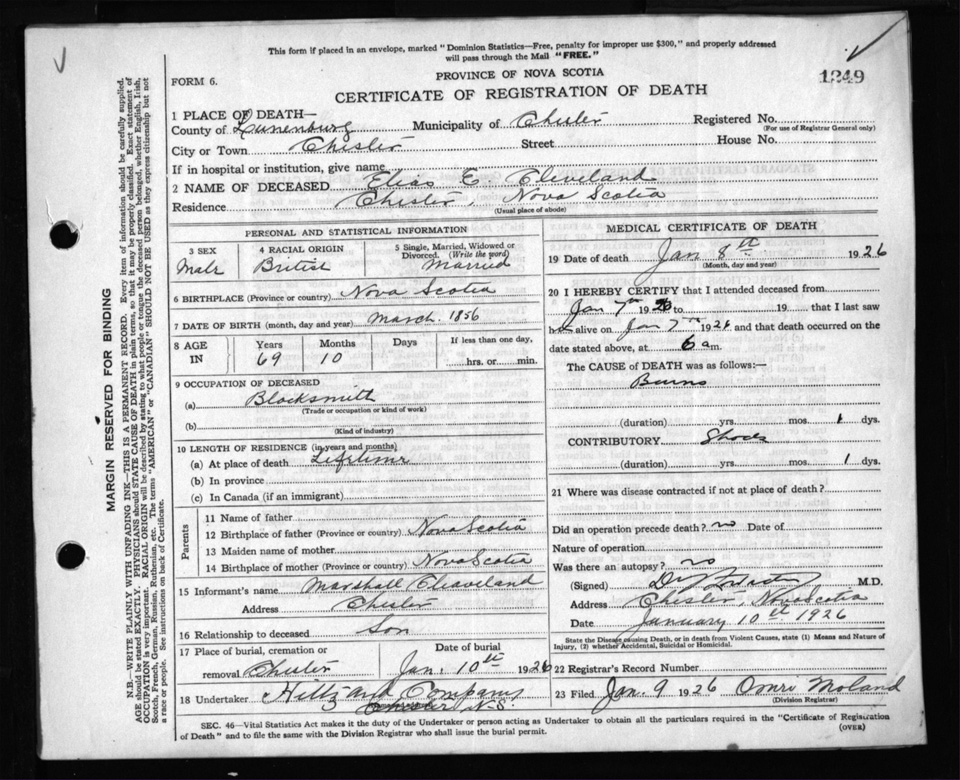 This form if placed in an envelope, marked "Dominion Statistics—Free, penalty for improper use $300," and properly addressed
will pass through the Mail "FREE."
PROVINCE OF NOVA SCOTIA
1249
FORM 6.
CERTIFICATE OF REGISTRATION OF DEATH
1 PLACE OF DEATH—
County of Lunenburg Municipality of Chester Registered No.
(For use of Registrar General only)
City or Town Chester Street House No.
If in hospital or institution, give name
2 NAME OF DECEASED Elias E. Cleveland
Residence Chester, Nova Scotia
(Usual place of abode)
PERSONAL AND STATISTICAL INFORMATION
3 SEX Male
4 RACIAL ORIGIN British
5 Single, Married, Widowed or Divorced. (Write the word) Married
6 BIRTHPLACE (Province or country) Nova Scotia
7 DATE OF BIRTH (month, day and year) March. 1856
8 AGE IN Years 69 Months 10 Days If less than one day, hrs. or min.
9 OCCUPATION OF DECEASED
(a) Blacksmith
(Trade or occupation or kind of work)
(b)
(Kind of industry)
10 LENGTH OF RESIDENCE (in years and months)
(a) At place of death Lifetime
(b) In province
(c) In Canada (if an immigrant)
Parents
11 Name of father
12 Birthplace of father (Province or country) Nova Scotia
13 Maiden name of mother
14 Birthplace of mother (Province or country) Nova Scotia
15 Informant's name Marshall Cleaveland
Address Chester
16 Relationship to deceased Son
17 Place of burial, cremation or removal Chester Date of burial Jan. 10th 1926
18 Undertaker Hiltz and Company
Chester N.S.
MEDICAL CERTIFICATE OF DEATH
19 Date of death Jan 8th 1926
(Month, day and year)
20 I HEREBY CERTIFY that I attended deceased from
Jan 7th 1926 to 19 that I last saw
h alive on Jan 7th 1926 and that death occurred on
date stated above, at 6 a.m.
The CAUSE OF DEATH was as follows:—
Burns
(duration) yrs. mos. 1 dys.
CONTRIBUTORY Shock
(duration) yrs. mos. 1 dys.
21 Where was disease contracted if not at place of death?
Did an operation precede death? no Date of
Nature of operation
Was there an autopsy? no
(Signed) M.D.
Address Chester, Nova Scotia
Date January 10th 1926
State the Disease causing Death, or in death from Violent Causes, state (1) Means and Nature of
Injury, (2) whether Accidental, Suicidal or Homicidal.
22 Registrar's Record Number
23 Filed Jan. 9 1926 Omri Moland
(Division Registrar)
SEC. 46—Vital Statistics Act makes it the duty of the Undertaker or person acting as Undertaker to obtain all the particulars required in the "Certificate of Registration
of Death" and to file the same with the Division Registrar who shall issue the burial permit.
(OVER)
MARGIN RESERVED FOR BINDING
N.B.—WRITE PLAINLY WITH UNFADING INK—THIS IS A PERMANENT RECORD. Every item of information should be carefully supplied.
AGE should be stated EXACTLY. PHYSICIANS should STATE CAUSE OF DEATH in plain terms, so that it may be properly classified. Exact statement of
OCCUPATION is very important. RACIAL ORIGIN will be described by stating to what people or tongue the deceased person belonged, whether English, Irish,
Scotch, French, German, Russian, Ruthenian, etc. The terms "AMERICAN" or "CANADIAN" SHOULD NOT BE USED as they express citizenship but not
a race or people. See instructions on back of Certificate.